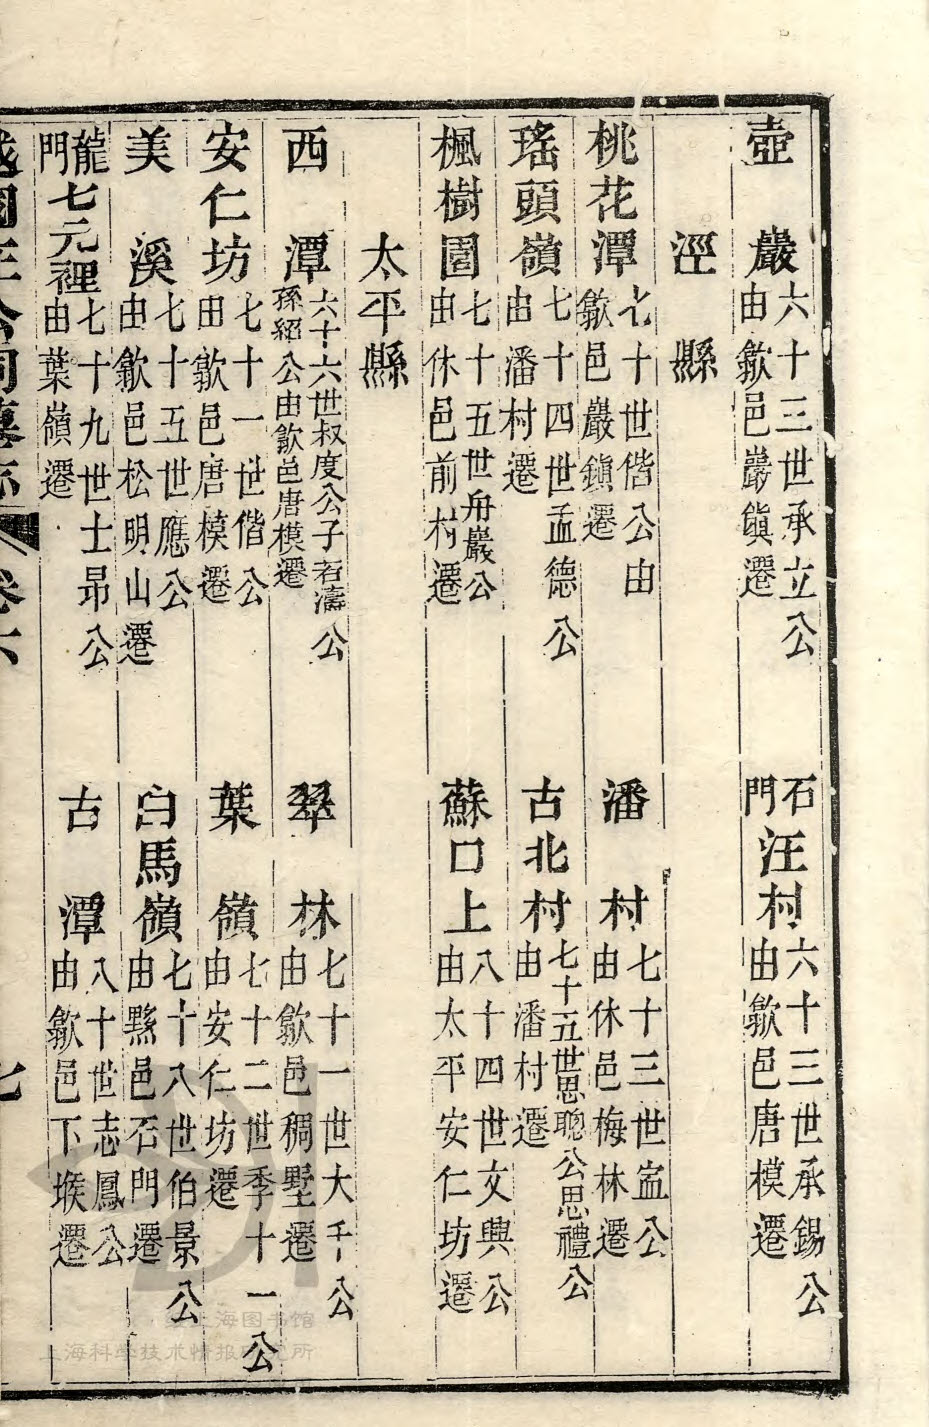 壺巖六十三世承立公由歙邑巖鎮遷
石門汪村六十三世承錫公由歙邑唐模遷
涇縣
桃花潭七十世偕公由歙邑巖鎮遷
潘村七十三世盆公由休邑梅林遷
瑤頭嶺七十四世孟德公由潘村遷
古北村七十五世思聰公思禮公由潘村遷
楓樹園七十五世舟巖公由休邑前村遷
蘇口上八十四世文興公由太平安仁坊遷
太平縣
西潭六十六世叔度公子若濤公孫紹公由歙邑唐模遷
翠林七十一世大千公由歙邑稠墅遷
安仁坊七十一世偕公由歙邑唐模遷
葉嶺七十二世季十一公由安仁坊遷
美溪七十五世應公由歙邑松明山遷
白馬嶺七十八世伯景公由黟邑石門遷
龍門七元裡七十九世士昂公由葉嶺遷
古潭八十世志鳳公由歙邑下堠遷
越國汪公祠墓志 卷六 七
上海图书馆
上海科学技术情报研究所